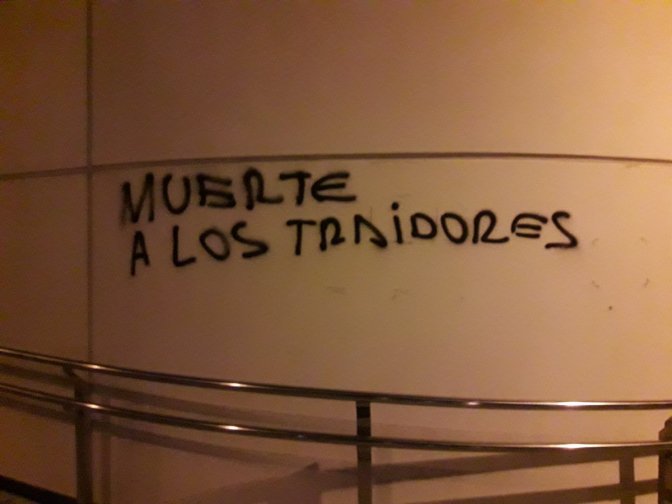 MUERTE
A LOS TRAiDORES